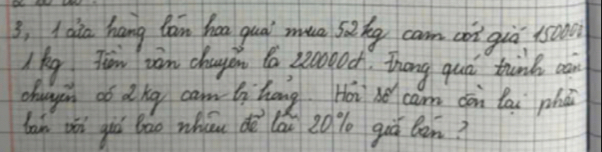 3, 1 cửa hàng bán hoa quả mua 52 kg cam với giá 15000đ
1 kg. Tiền vận chuyển là 220000đ. Trong quá trình vận
chuyển có 2 kg cam bị hỏng. Hỏi số cam còn lại phải
bán với giá bao nhiêu để lãi 20% giá bán?